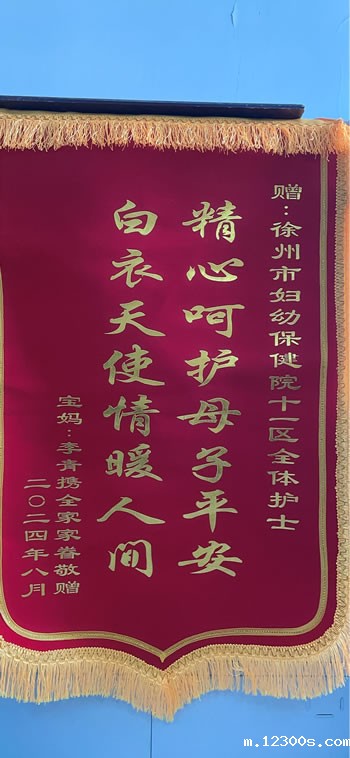 赠：徐州市妇幼保健院十一区全体护士
精心呵护母子平安
白衣天使情暖人间
宝妈：李青携全家家眷敬赠
二〇二四年八月
m.12300s.com